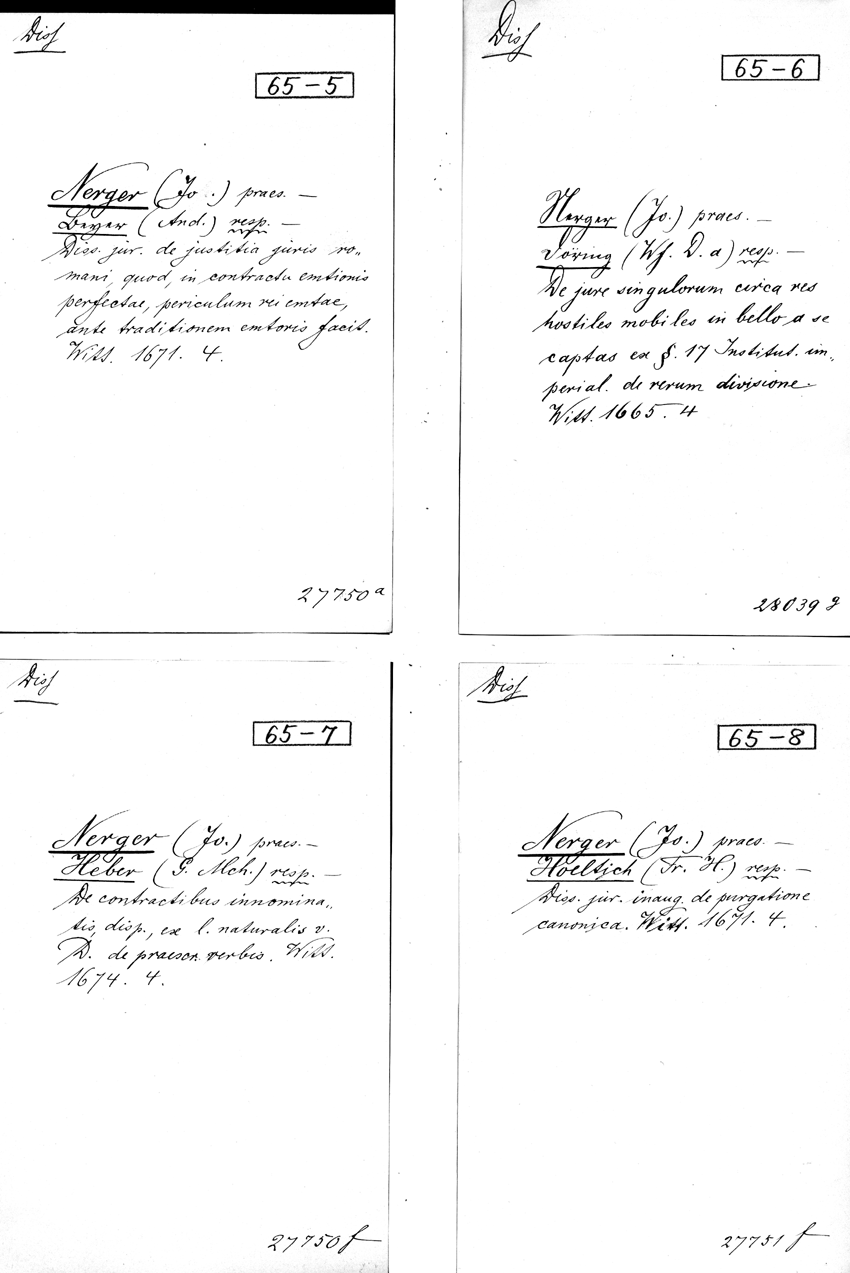 Diss
65-5
Nerger (Jo.) praes. —
Beyer (And.) resp. —
Diss. jur. de justitia juris ro„
mani, quod, in contractu emtionis
perfectae, periculum rei emtae,
ante traditionem emtoris facit.
Witt. 1671. 4.
27750 a
Diss
65-6
Nerger (Jo.) praes. —
Döring (Wf. D. a) resp. —
De jure singulorum circa res
hostiles mobiles in bello a se
captas ex §. 17 Institut. im„
perial. de rerum divisione.
Witt. 1665. 4
28039 g
Diss
65-7
Nerger (Jo.) praes. —
Heber (G. Mch.) resp. —
De contractibus innomina„
tis, disp., ex l. naturalis v.
D. de praescr. verbis. Witt.
1674. 4.
27750 f
Diss
65-8
Nerger (Jo.) praes. —
Hoeltich (Fr. H.) resp. —
Diss. jur. inaug. de purgatione
canonica. Witt. 1671. 4.
27751 f